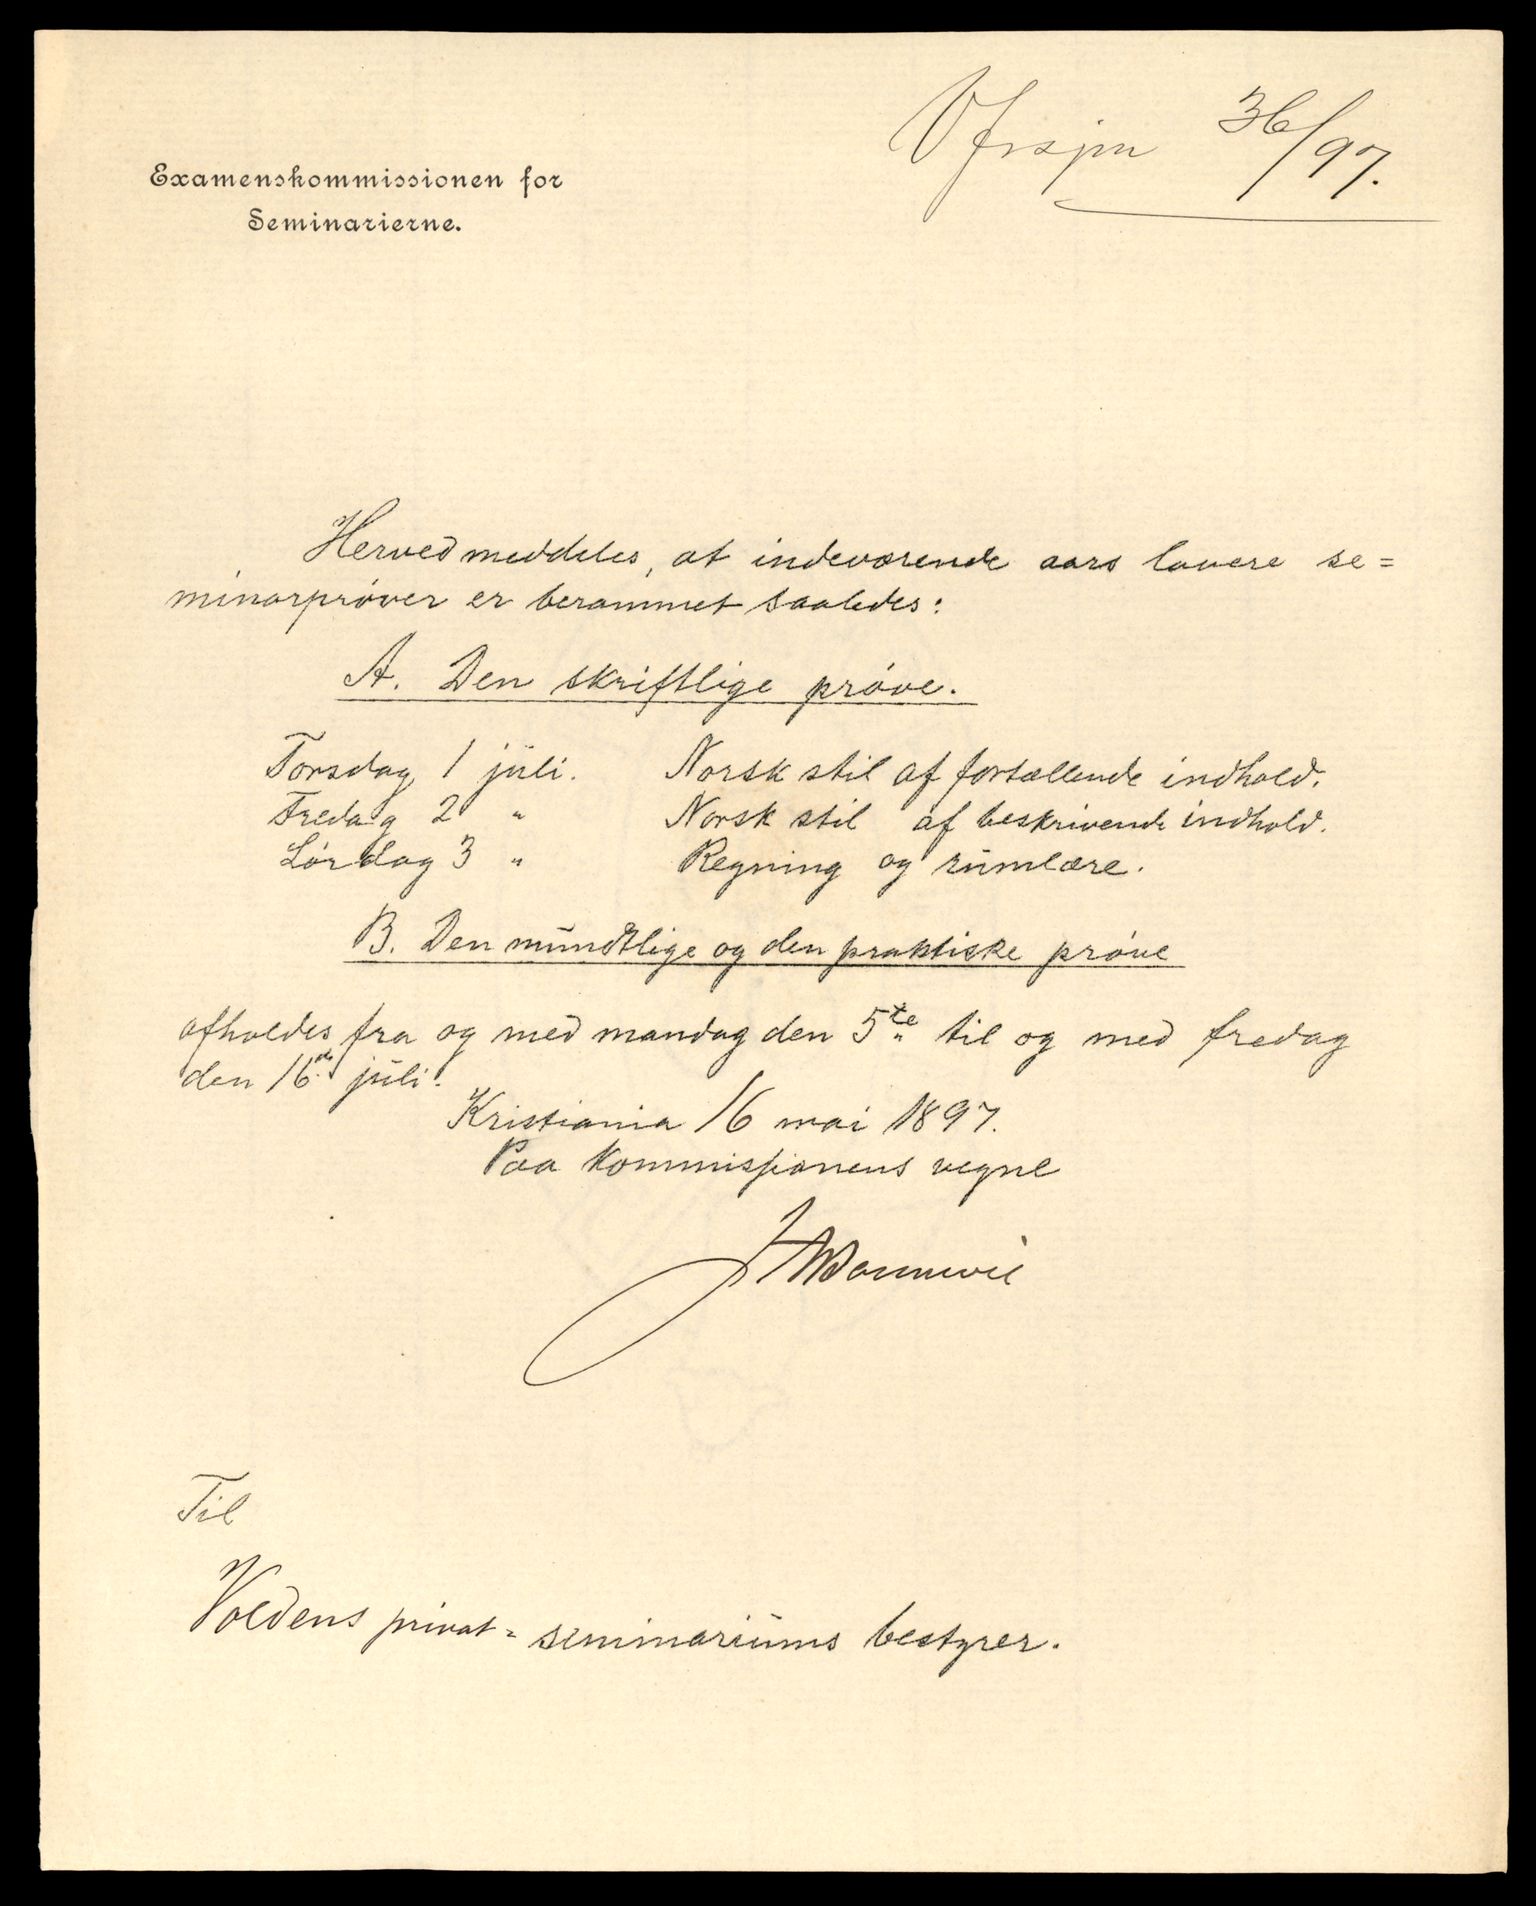 Examenskommissionen for
Seminarierne.
36/97.
Herved meddeles, at indeværende aars lavere se=
minarprøver er berammet saaledes:
A. Den skriftlige prøve.
Torsdag 1 juli. Norsk stil af fortællende indhold.
Fredag 2 " Norsk stil af beskrivende indhold.
Lørdag 3 " Regning og rumlære.
B. Den mundtlige og den praktiske prøve
afholdes fra og med mandag den 5te til og med fredag
den 16de juli.
Kristiania 16 mai 1897.
Paa Kommissionens vegne
Til
Voldens privat= seminariums bestyrer.